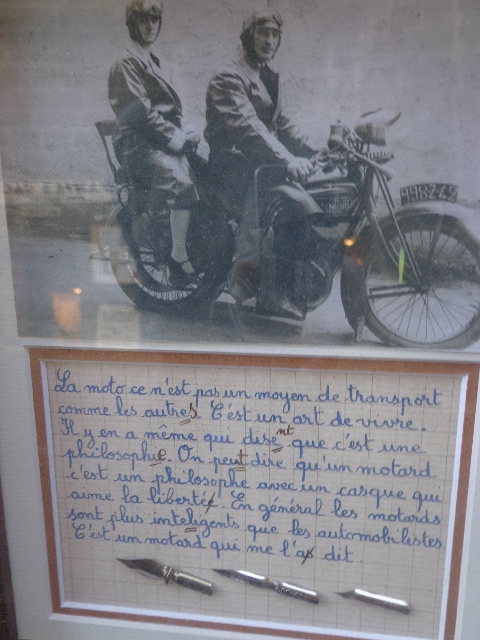 La moto ce n'est pas un moyen de transport
comme les autres. C'est un art de vivre.
Il y en a même qui disent que c'est une
philosophie. On peut dire qu'un motard
c'est un philosophe avec un casque qui
aime la liberté. En général les motards
sont plus inteligents que les automobilistes
C'est un motard qui me l'a dit.